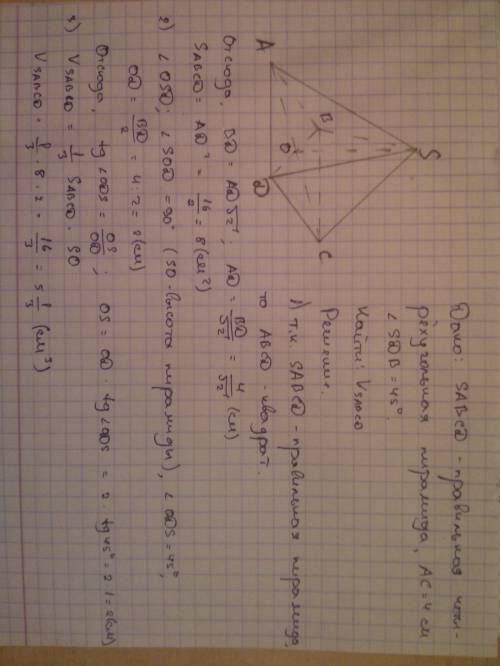 Дано: SABCD - правильная четы-
рёхугольная пирамида, AC = 4 см
∠SDB = 45°.
Найти: V SABCD
Решение.
1) т.к. SABCD - правильная пирамида,
то ABCD - квадрат.
A
B
S
O
D
C
Отсюда, BD = AD√2; AD = BD/√2 = 4/√2 (см)
SABCD = AD² = 16/2 = 8 (см²)
2) ∠OSD; ∠SOD = 90° (SO - высота пирамиды), ∠ODS = 45°,
OD = BD/2 = 4:2 = 2 (см)
Отсюда, tg∠ODS = OS/OD; OS = OD · tg∠ODS = 2 · tg45° = 2 · 1 = 2 (см)
3) V SABCD = 1/3 SABCD · SO
V SABCD = 1/3 · 8 · 2 = 16/3 = 5 1/3 (см³)